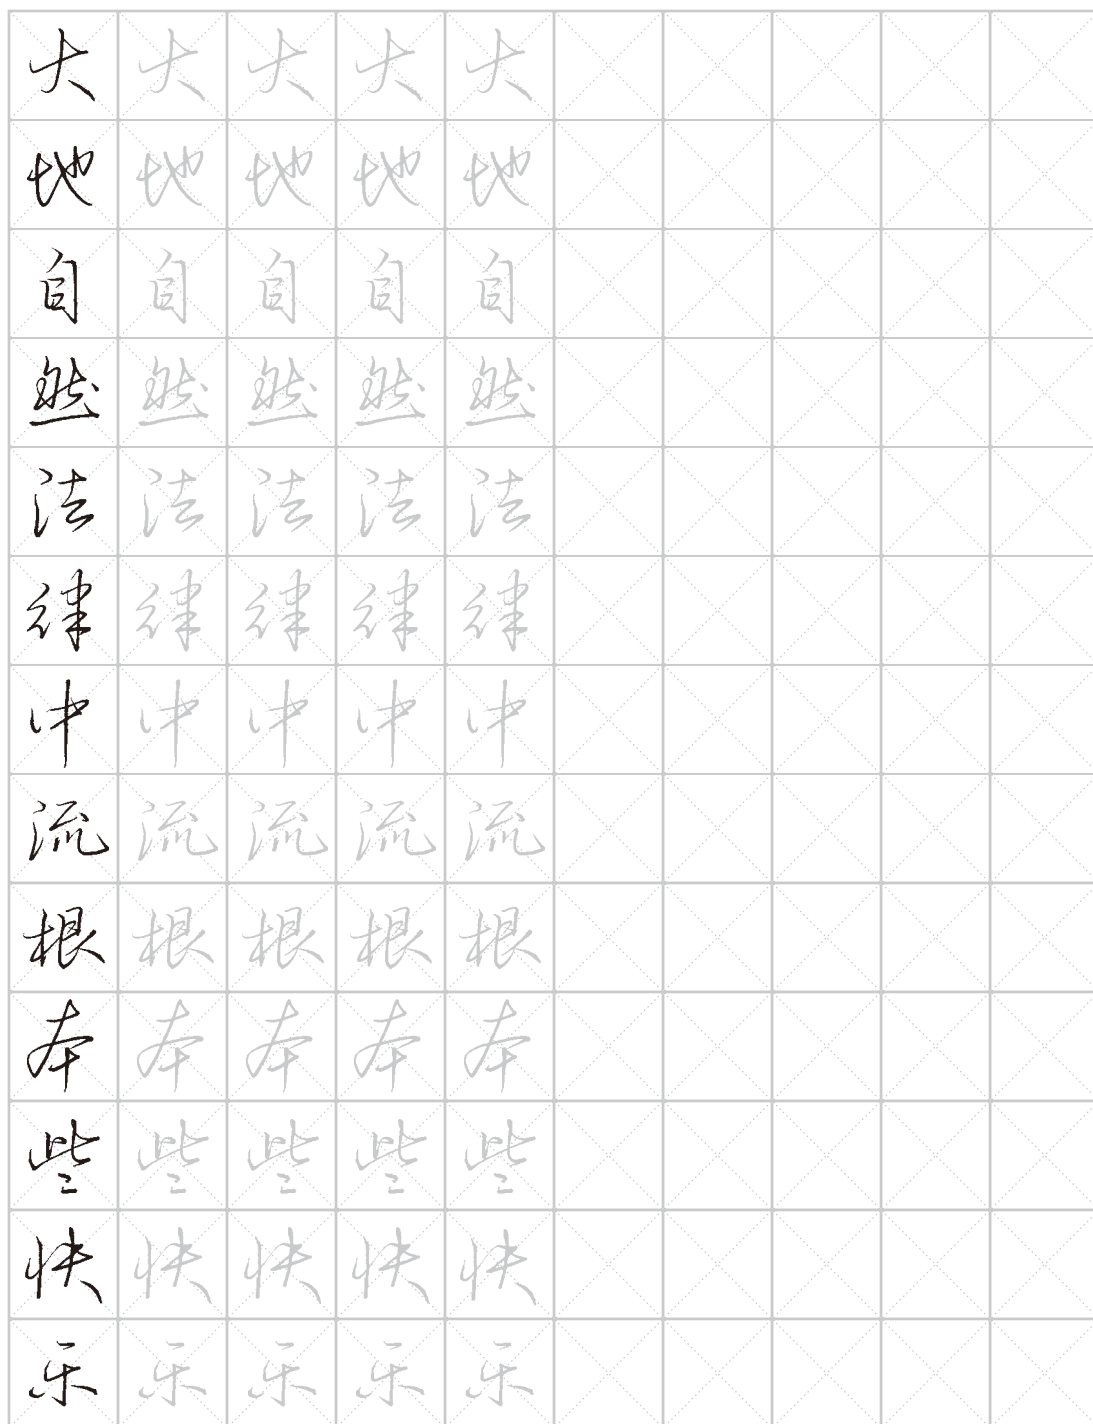 大大大大大
地地地地地
自自自自自
然然然然然
法法法法法
律律律律律
中中中中中
流流流流流
根根根根根
本本本本本
些些些些些
快快快快快
乐乐乐乐乐